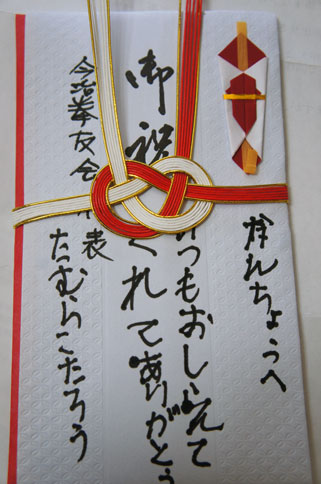 ちょうへ
いつもおしえて
御祝
くれてありがとう
今治拳友会代表
たつむらこたろう